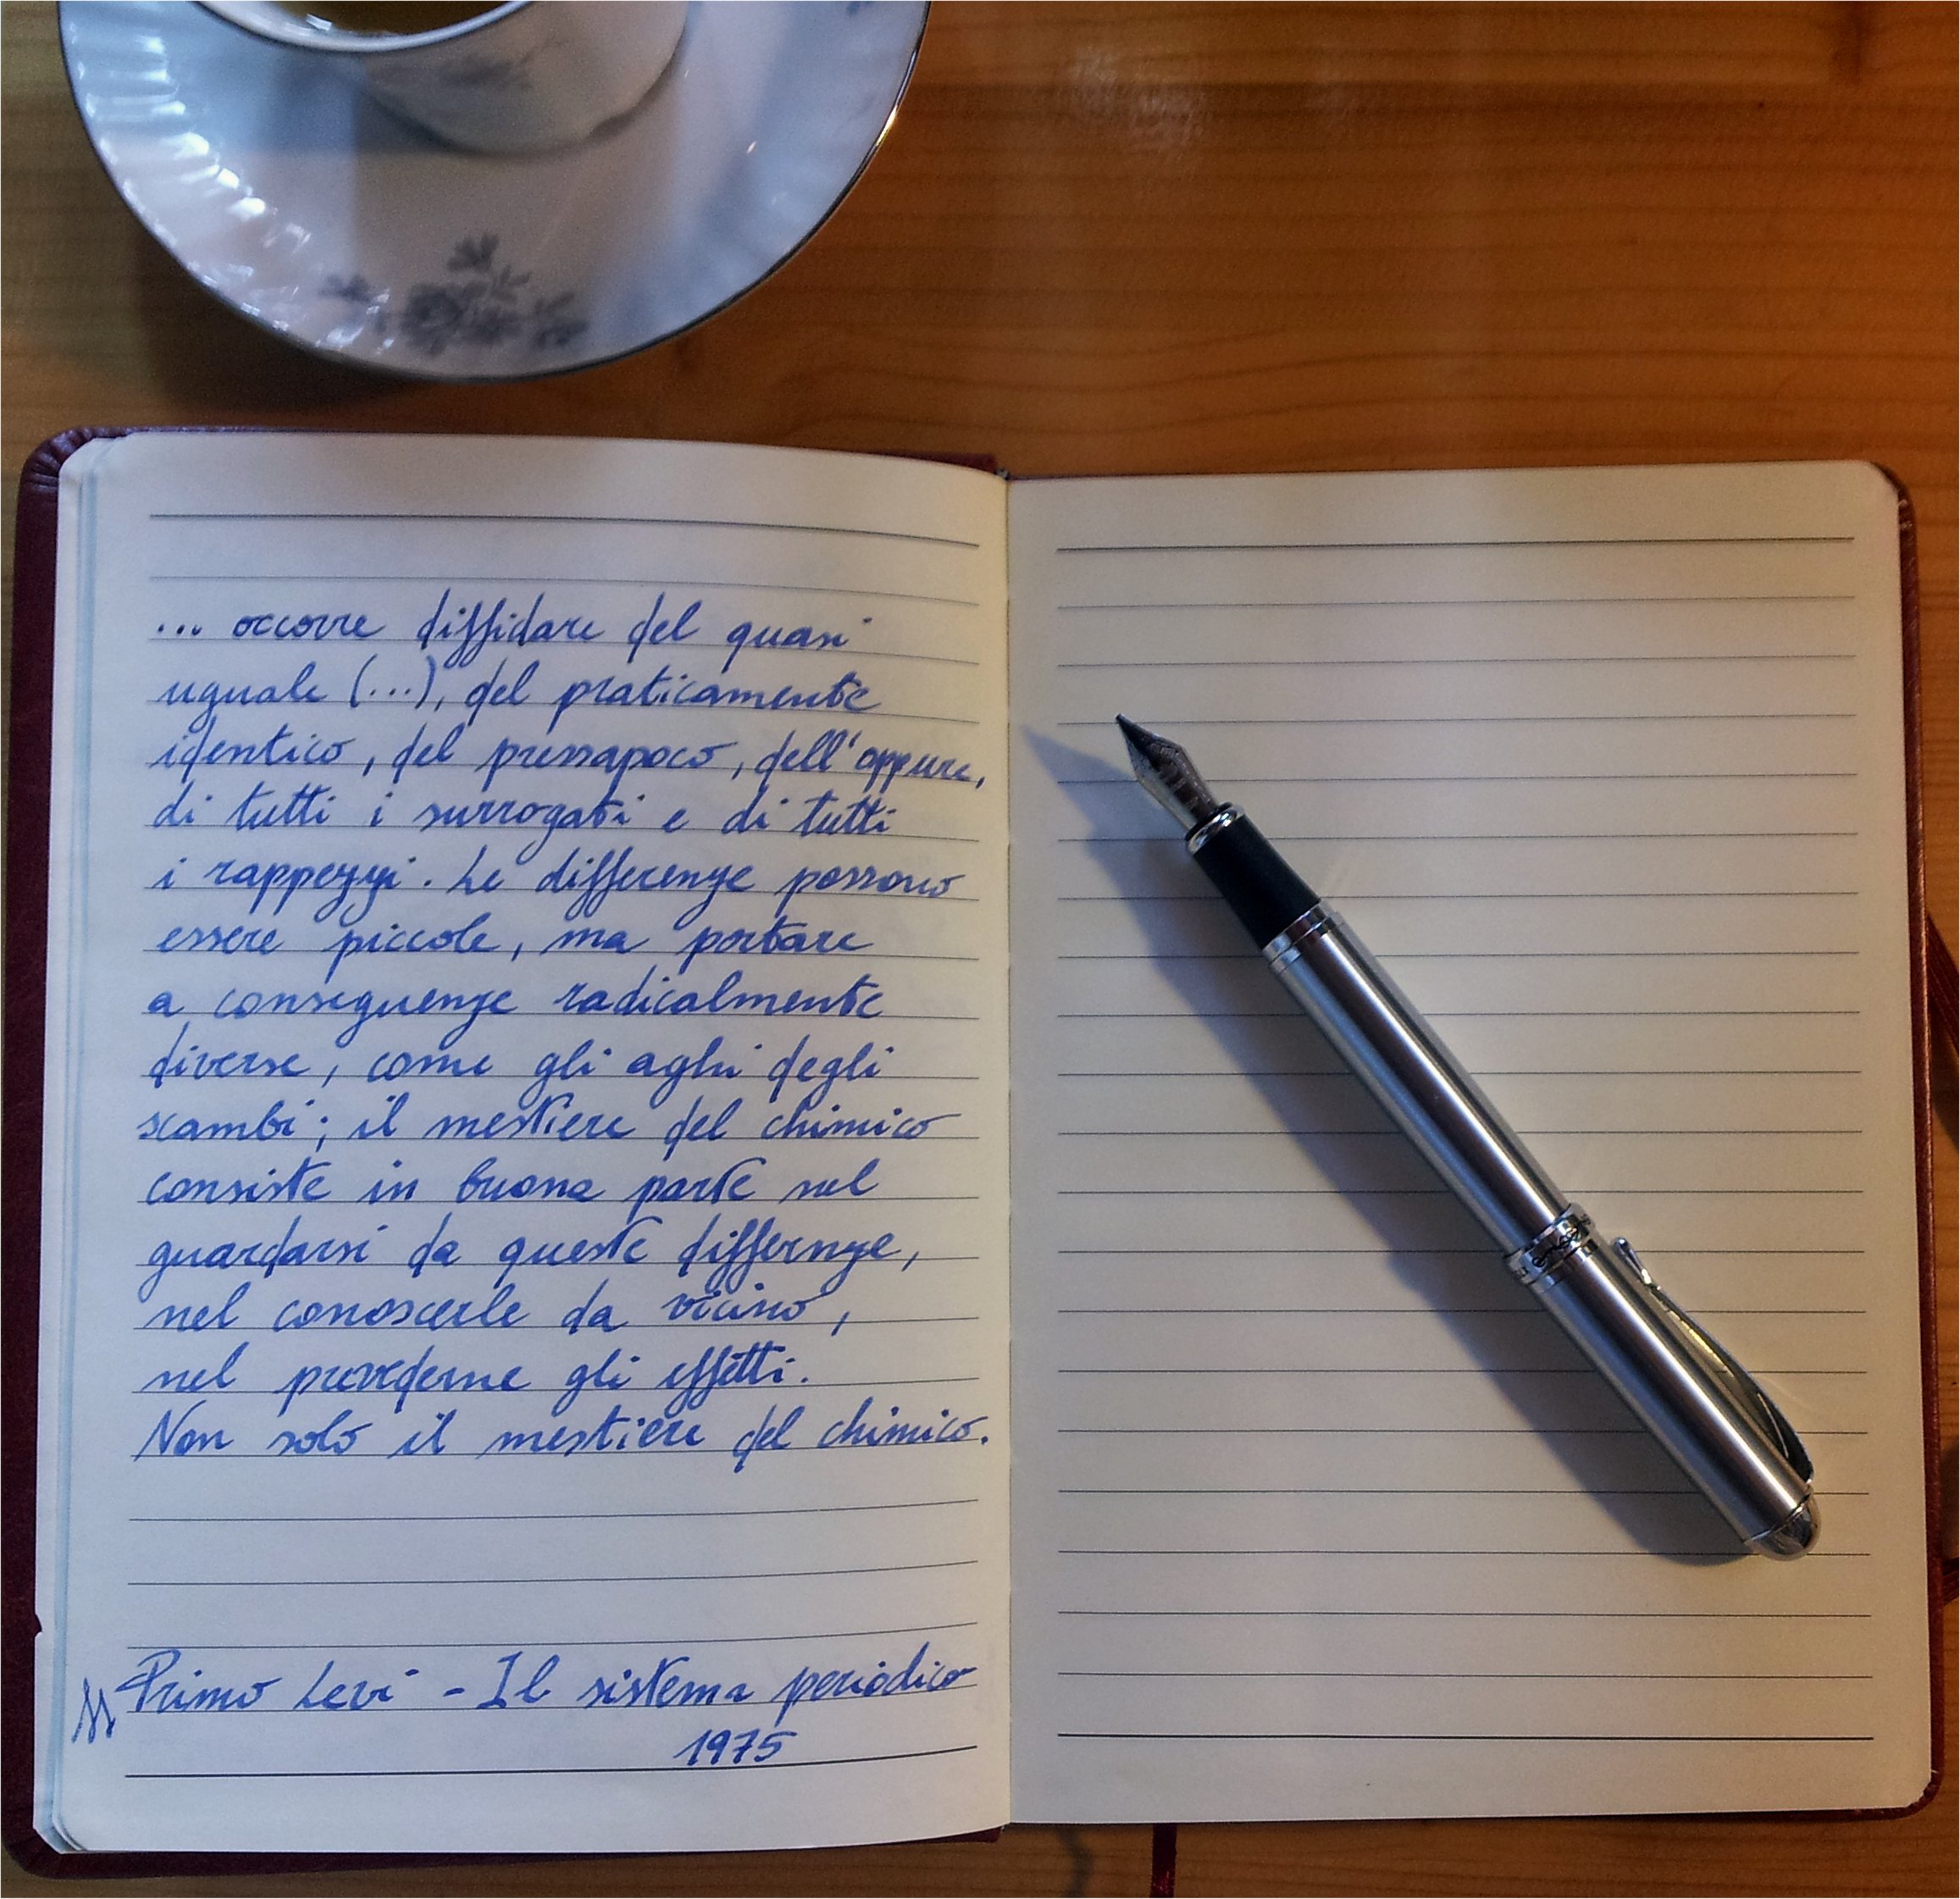 ... occorre diffidare del quasi
uguale (...), del praticamente
identico, del pressapoco, dell'oppure,
di tutti i surrogati e di tutti
i rappezzi. Le differenze possono
essere piccole, ma portare
a conseguenze radicalmente
diverse, come gli aghi degli
scambi; il mestiere del chimico
consiste in buona parte nel
guardarsi da queste differnze,
nel conoscerle da vicino,
nel prevederne gli effetti.
Non solo il mestiere del chimico.
Primo Levi - Il sistema periodico
1975